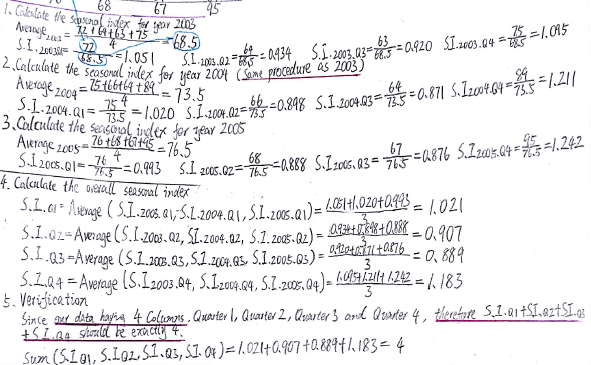 68 67 95
1. Calculate the seasonal index for year 2003
Average2003 = 72+69+63+75 / 4 = 68.5
S.I.2003.Q1 = 72 / 68.5 = 1.051 S.I.2003.Q2 = 64 / 68.5 = 0.934 S.I.2003.Q3 = 63 / 68.5 = 0.920 S.I.2003.Q4 = 75 / 68.5 = 1.095
2. Calculate the seasonal index for year 2004 (Same procedure as 2003)
Average2004 = 75+66+64+89 / 4 = 73.5
S.I.2004.Q1 = 75 / 73.5 = 1.020 S.I.2004.Q2 = 66 / 73.5 = 0.898 S.I.2004.Q3 = 64 / 73.5 = 0.871 S.I.2004.Q4 = 89 / 73.5 = 1.211
3. Calculate the seasonal index for year 2005
Average2005 = 76+68+67+95 / 4 = 76.5
S.I.2005.Q1 = 76 / 76.5 = 0.993 S.I.2005.Q2 = 68 / 76.5 = 0.888 S.I.2005.Q3 = 67 / 76.5 = 0.876 S.I.2005.Q4 = 95 / 76.5 = 1.242
4. Calculate the overall seasonal index
S.I.Q1 = Average (S.I.2003.Q1, S.I.2004.Q1, S.I.2005.Q1) = 1.051+1.020+0.993 / 3 = 1.021
S.I.Q2 = Average (S.I.2003.Q2, S.I.2004.Q2, S.I.2005.Q2) = 0.934+0.898+0.888 / 3 = 0.907
S.I.Q3 = Average (S.I.2003.Q3, S.I.2004.Q3, S.I.2005.Q3) = 0.920+0.871+0.876 / 3 = 0.889
S.I.Q4 = Average (S.I.2003.Q4, S.I.2004.Q4, S.I.2005.Q4) = 1.095+1.211+1.242 / 3 = 1.183
5. Verification
Since our data having 4 Columns. Quarter 1, Quarter 2, Quarter 3 and Quarter 4, therefore S.I.Q1+S.I.Q2+S.I.Q3
+S.I.Q4 should be exactly 4.
Sum (S.I.Q1, S.I.Q2, S.I.Q3, S.I.Q4) = 1.021+0.907+0.889+1.183 = 4